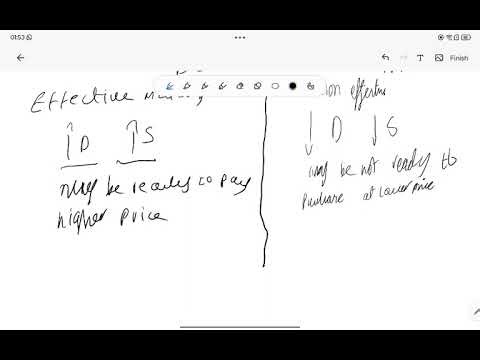 01:53
Finish
Effective
↑D ↑S
may be ready to pay
higher price
↓ D ↓ S
may be not ready to
purchase at lower price